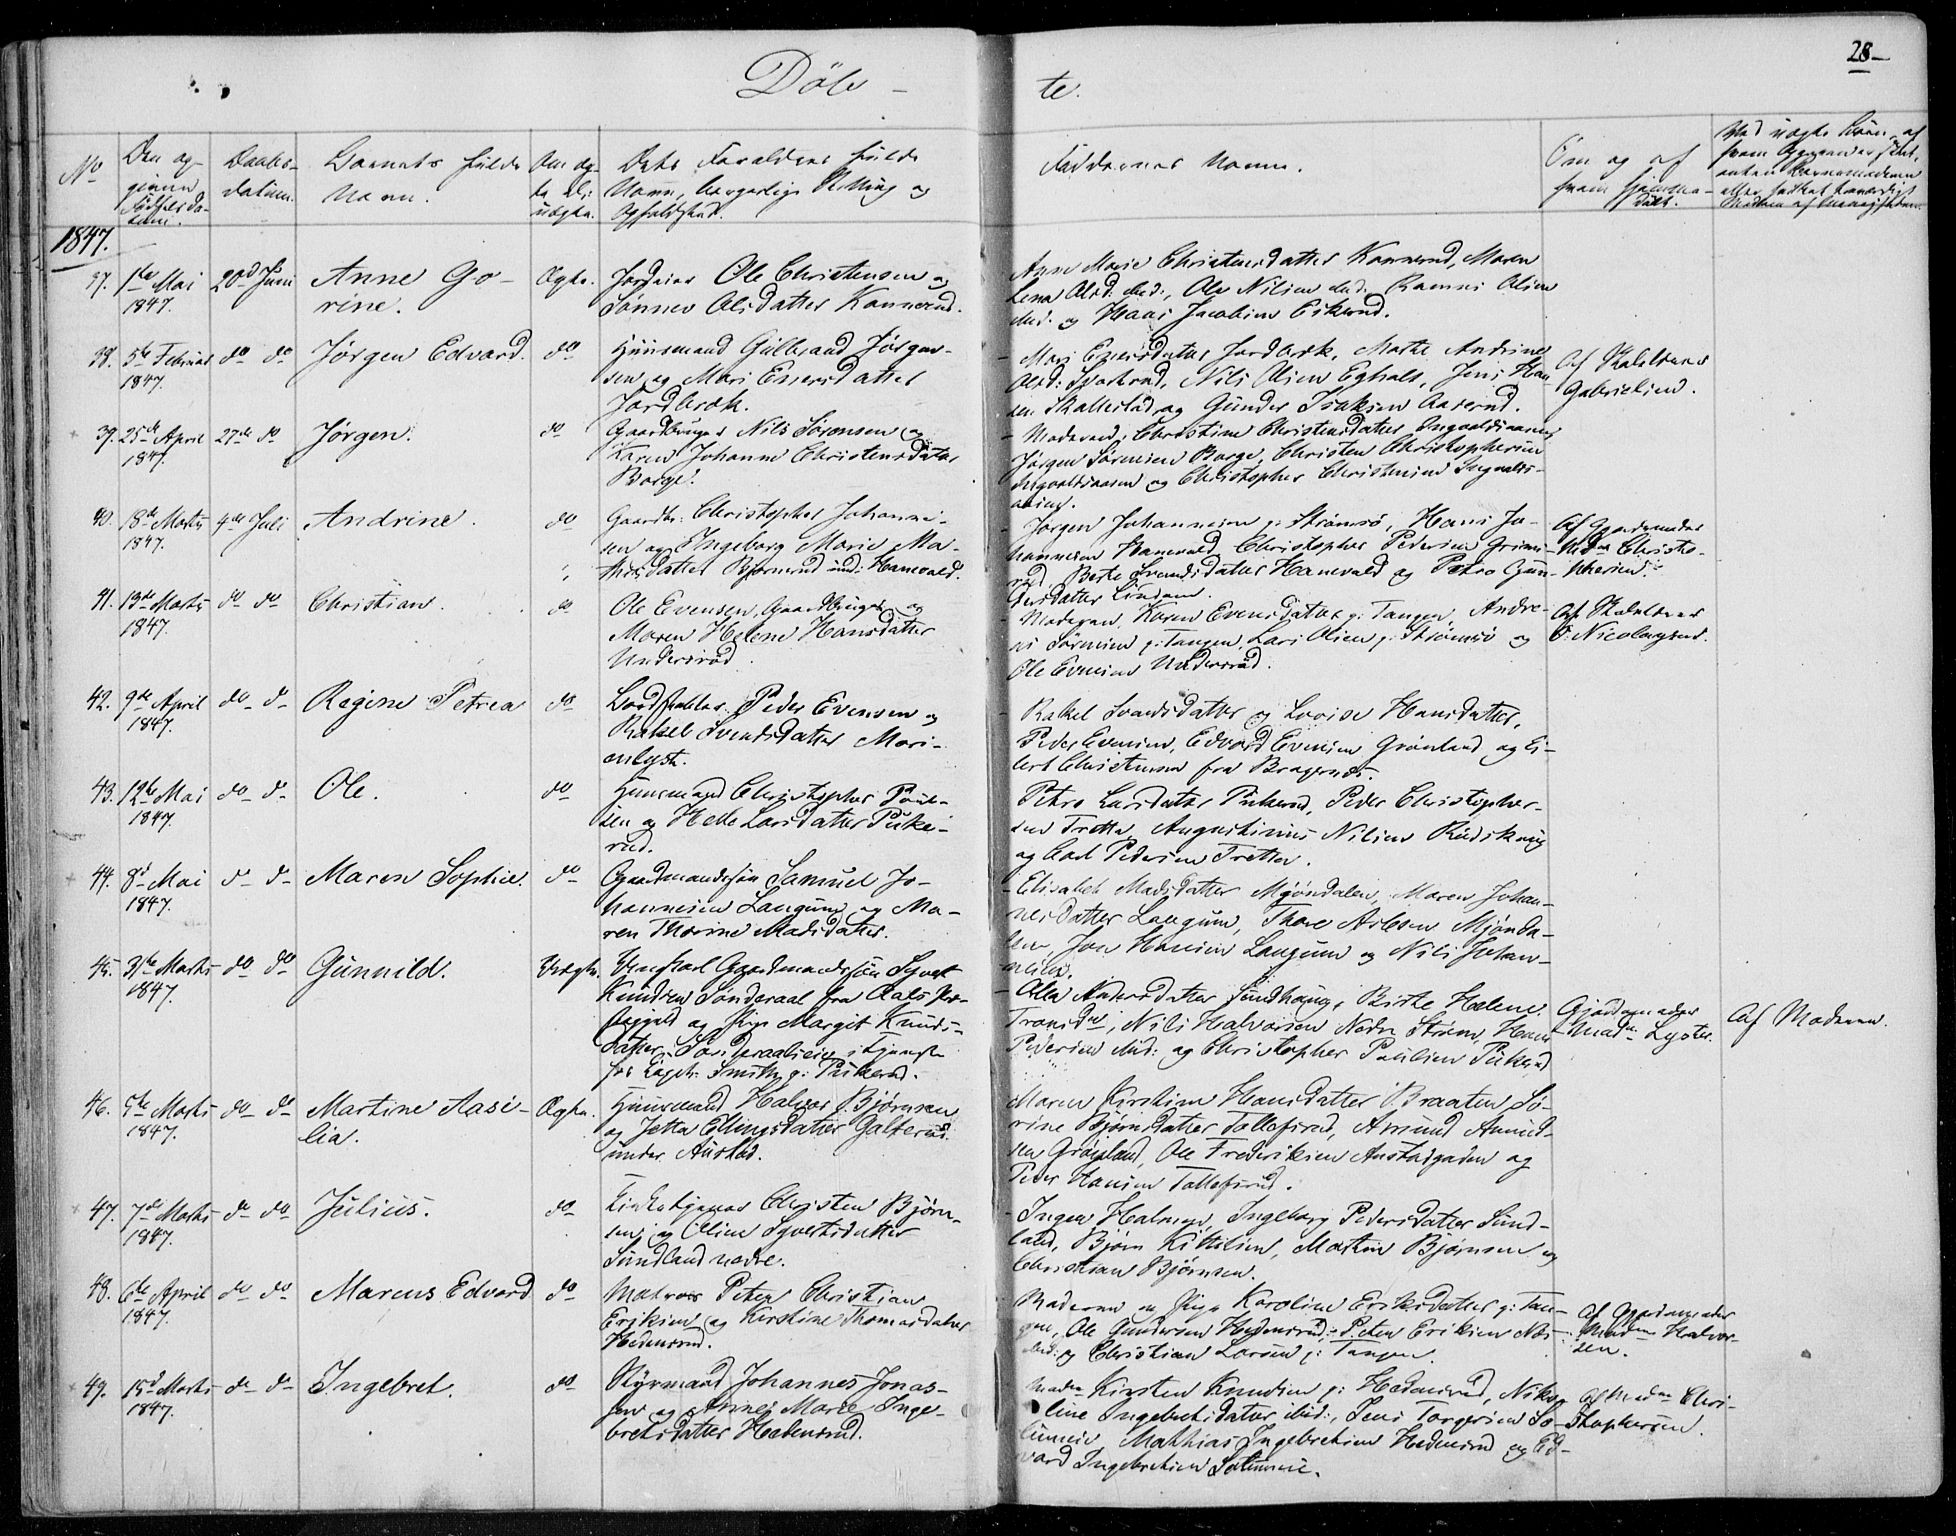 28
Döb - te.
No
Den op-
givne
Fødsels da-
tum.
Daabs-
datum.
Barnets fulde
Navn.
Om æg-
te el:
uægte.
Dets Forældres fulde
Navn, borgerlige Stilling og
Opholdssted.
Faddernes Navne.
Om og af
hvem hjemme-
døbt.
1847.
37. 1ste Mai 20d Juni Anne Go- Ægte. Ole Christensen og
1847. rine. Olsdatter Konnerud.
Anne Marie Christensdatter Konnerud, Maren
Lena Olsd. ibid:, Ole Nilsen ibid: Olsen
ibid. og Hans Jacobsen Eikerud.
38. 5te Februar do do Jørgen Edvard. do Huusmand Gulbrand Jørgen-
1847. sen og Mari Enersdatter
Jordbrek.
Mari Enersdatter Jordbrek, Marthe Andrine
Olsd: Nils Olsen Jens Han-
sen Skallestad og Gunder Isaksen Aaserud.
Af Skoleholder
Gabrielsen.
39. 25de April 27de do Jørgen. do Gaardbruger Nils Sørensen og
1847. Karen Johanne Christensdatter
Borge.
Moderen, Christine Christensdatter
Jørgen Sørensen Borge, Christen Christophersen
og Christopher Christensen
40. 18de Marts 4de Juli Andrine. do Gaardbr: Christopher Johanne-
1847. sen og Ingeborg Marie Ma-
thisdatter Bjørnerud und: Hanevald.
Jørgen Johannesen p: Strømsø, Hans Jo-
hannesen Hanevald, Christopher Pedersen
Berte Svendsdatter Hanevald og Petra Gun-
dersdatter Lindum.
Af Gjordemoder
Mdm Christo-
phersen.
41. 13de Marts do do Christian. do Ole Evensen, Gaardbruger og
1847. Maren Helene Hansdatter
Undersrud.
Moderen, Karen Evensdatter p: Tangen, Andre-
as Sørensen p: Tangen, Lars Olsen p: Strømsø og
Ole Evensen Undersrud.
Af Skoleholder
E. Nicolaysen.
42. 9de April do do Regine Petrea do Peder Evensen og
1847. Rakel Svendsdatter Mari-
enlyst.
Rakel Svendsdatter og Lovise Hansdatter,
Peder Evensen, Edvard Evensen Grønland og Ei-
lert Christensen fra Bragernes.
43. 12te Mai do d- Ole. do Huusmand Christopher Poul-
1847. sen og Helle Larsdatter Puke-
rud.
Petra Larsdatter Pukerud, Peder Christopher-
sen Tretten, Augustinus Nilsen
og Carl Pedersen Tretten.
44. 8d Mai d- d- Maren Sophie. do Gaardmandssøn Samuel Jo-
1847. hannesen Langum og Ma-
ren Thorine Madsdatter.
Elisabeth Madsdatter Mjøndalen, Maren Johan-
nesdatter Langum, Thore Aslesen Mjønda-
len, Jon Hansen Langum og Nils Johan-
nesen.
45. 31te Marts do do Gunnild. Uægte. Ungkarl Gaardmandssøn Syvert
1847. Knudsen Sønderaal fra Aals Præ-
stegjeld og Pige Margit Knuds-
datter i tjeneste
hos Smith p: Pukerud.
Olea Andersdatter Sundhaug, Birthe Helene
Nils Halvorsen Nedre Strøm, Hans
Pedersen ibid: og Christopher Paulsen Pukerud
Gjordemoder
Madm Lyster.
Af Moderen.
46. 5te Marts do do Martine Aase- Ægte. Huusmand Halvor Bjørnsen
1847. lia. og Jetta Ellingsdatter Galterud
under Austad.
Maren Kirstine Hansdatter Braaten, Sø-
rine Bjørnsdatter Tollefsrud, Amund Amund-
sen Ole Frederiksen Austadgaden og
Peder Hansen Tollefsrud.
47. 7de Marts do do Julius. do Christen Bjørn-
1847. sen og Oline Syvertsdatter
Sundland nedre.
Inger Halvorsd. Ingeborg Pedersdatter Sund-
land, Bjørn Kittelsen, Martin Bjørnsen og
Christian Bjørnsen.
48. 6te April do do Marcus Edvard do Matros Peter Christian
1847. Eriksen og Kirstine Thomasdatter
Hedensrud.
Moderen og Pige Karoline Eriksdatter p: Tan-
gen, Ole Gundersen Hedensrud, Peter Eriksen
ibid: og Christian Larsen p: Tangen.
Af Gjordemoder
Madm Halvor-
sen.
49. 15d Marts do d- Ingebret. do Styrmand Johannes Jonas-
1847. sen og Anne Marie Inge-
bretsdatter Hedensrud.
Madm Kirsten Knudsen p: Hedensrud, Niko-
line Ingebretsdatter ibid:, Jens Torgersen
Mathias Ingebretsen Hedensrud og Ed-
vard Ingebretsen
Af Madm Chri-
stophersen.